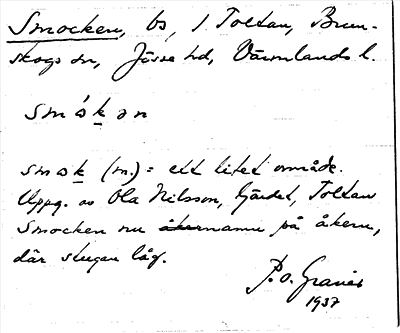 Smocken, bs, 1 Toltan, Brun-
skogs sn, Jösse hd, Värmlands l.
smɔ́kən
smɔk (m.) = ett litet område.
Uppg. av Ola Nilsson, Gärdet, Toltan
Smocken nu åkernamn på åkern,
där stugan låg.
P.O. Granér
1937